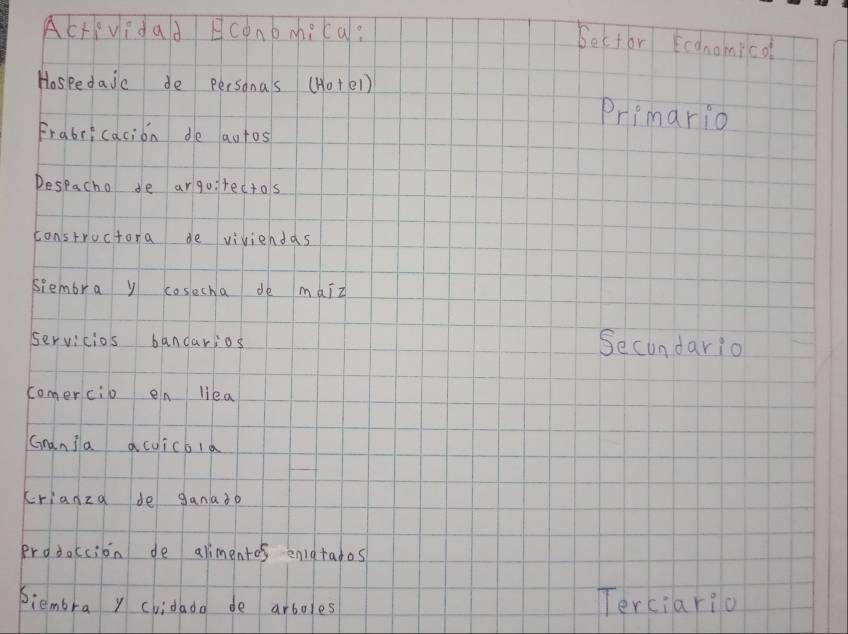 Actividad Economica:
Sector Economico:
Hospedaje de personas (Hotel)
Primario
Frabricación de autos
Despacho de arquitectos
constructora de viviendas
Siembra y cosecha de maíz
Servicios bancarios
Secundario
comercio en liea
Granja acuicola
Crianza de ganado
Producción de alimentos enlatados
Siembra y cuidado de arboles
Terciario